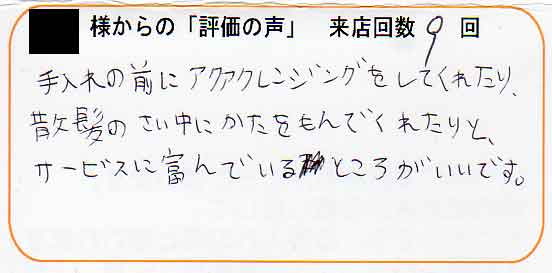 様からの「評価の声」 来店回数 9 回
手入れの前にアクアクレンジングをしてくれたり、
散髪のさい中にかたをもんでくれたりと、
サービスに富んでいるところがいいです。